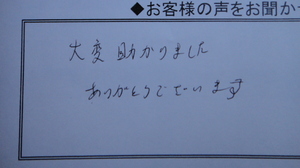 ◆お客様の声をお聞か
大変助かりました
ありがとうございます